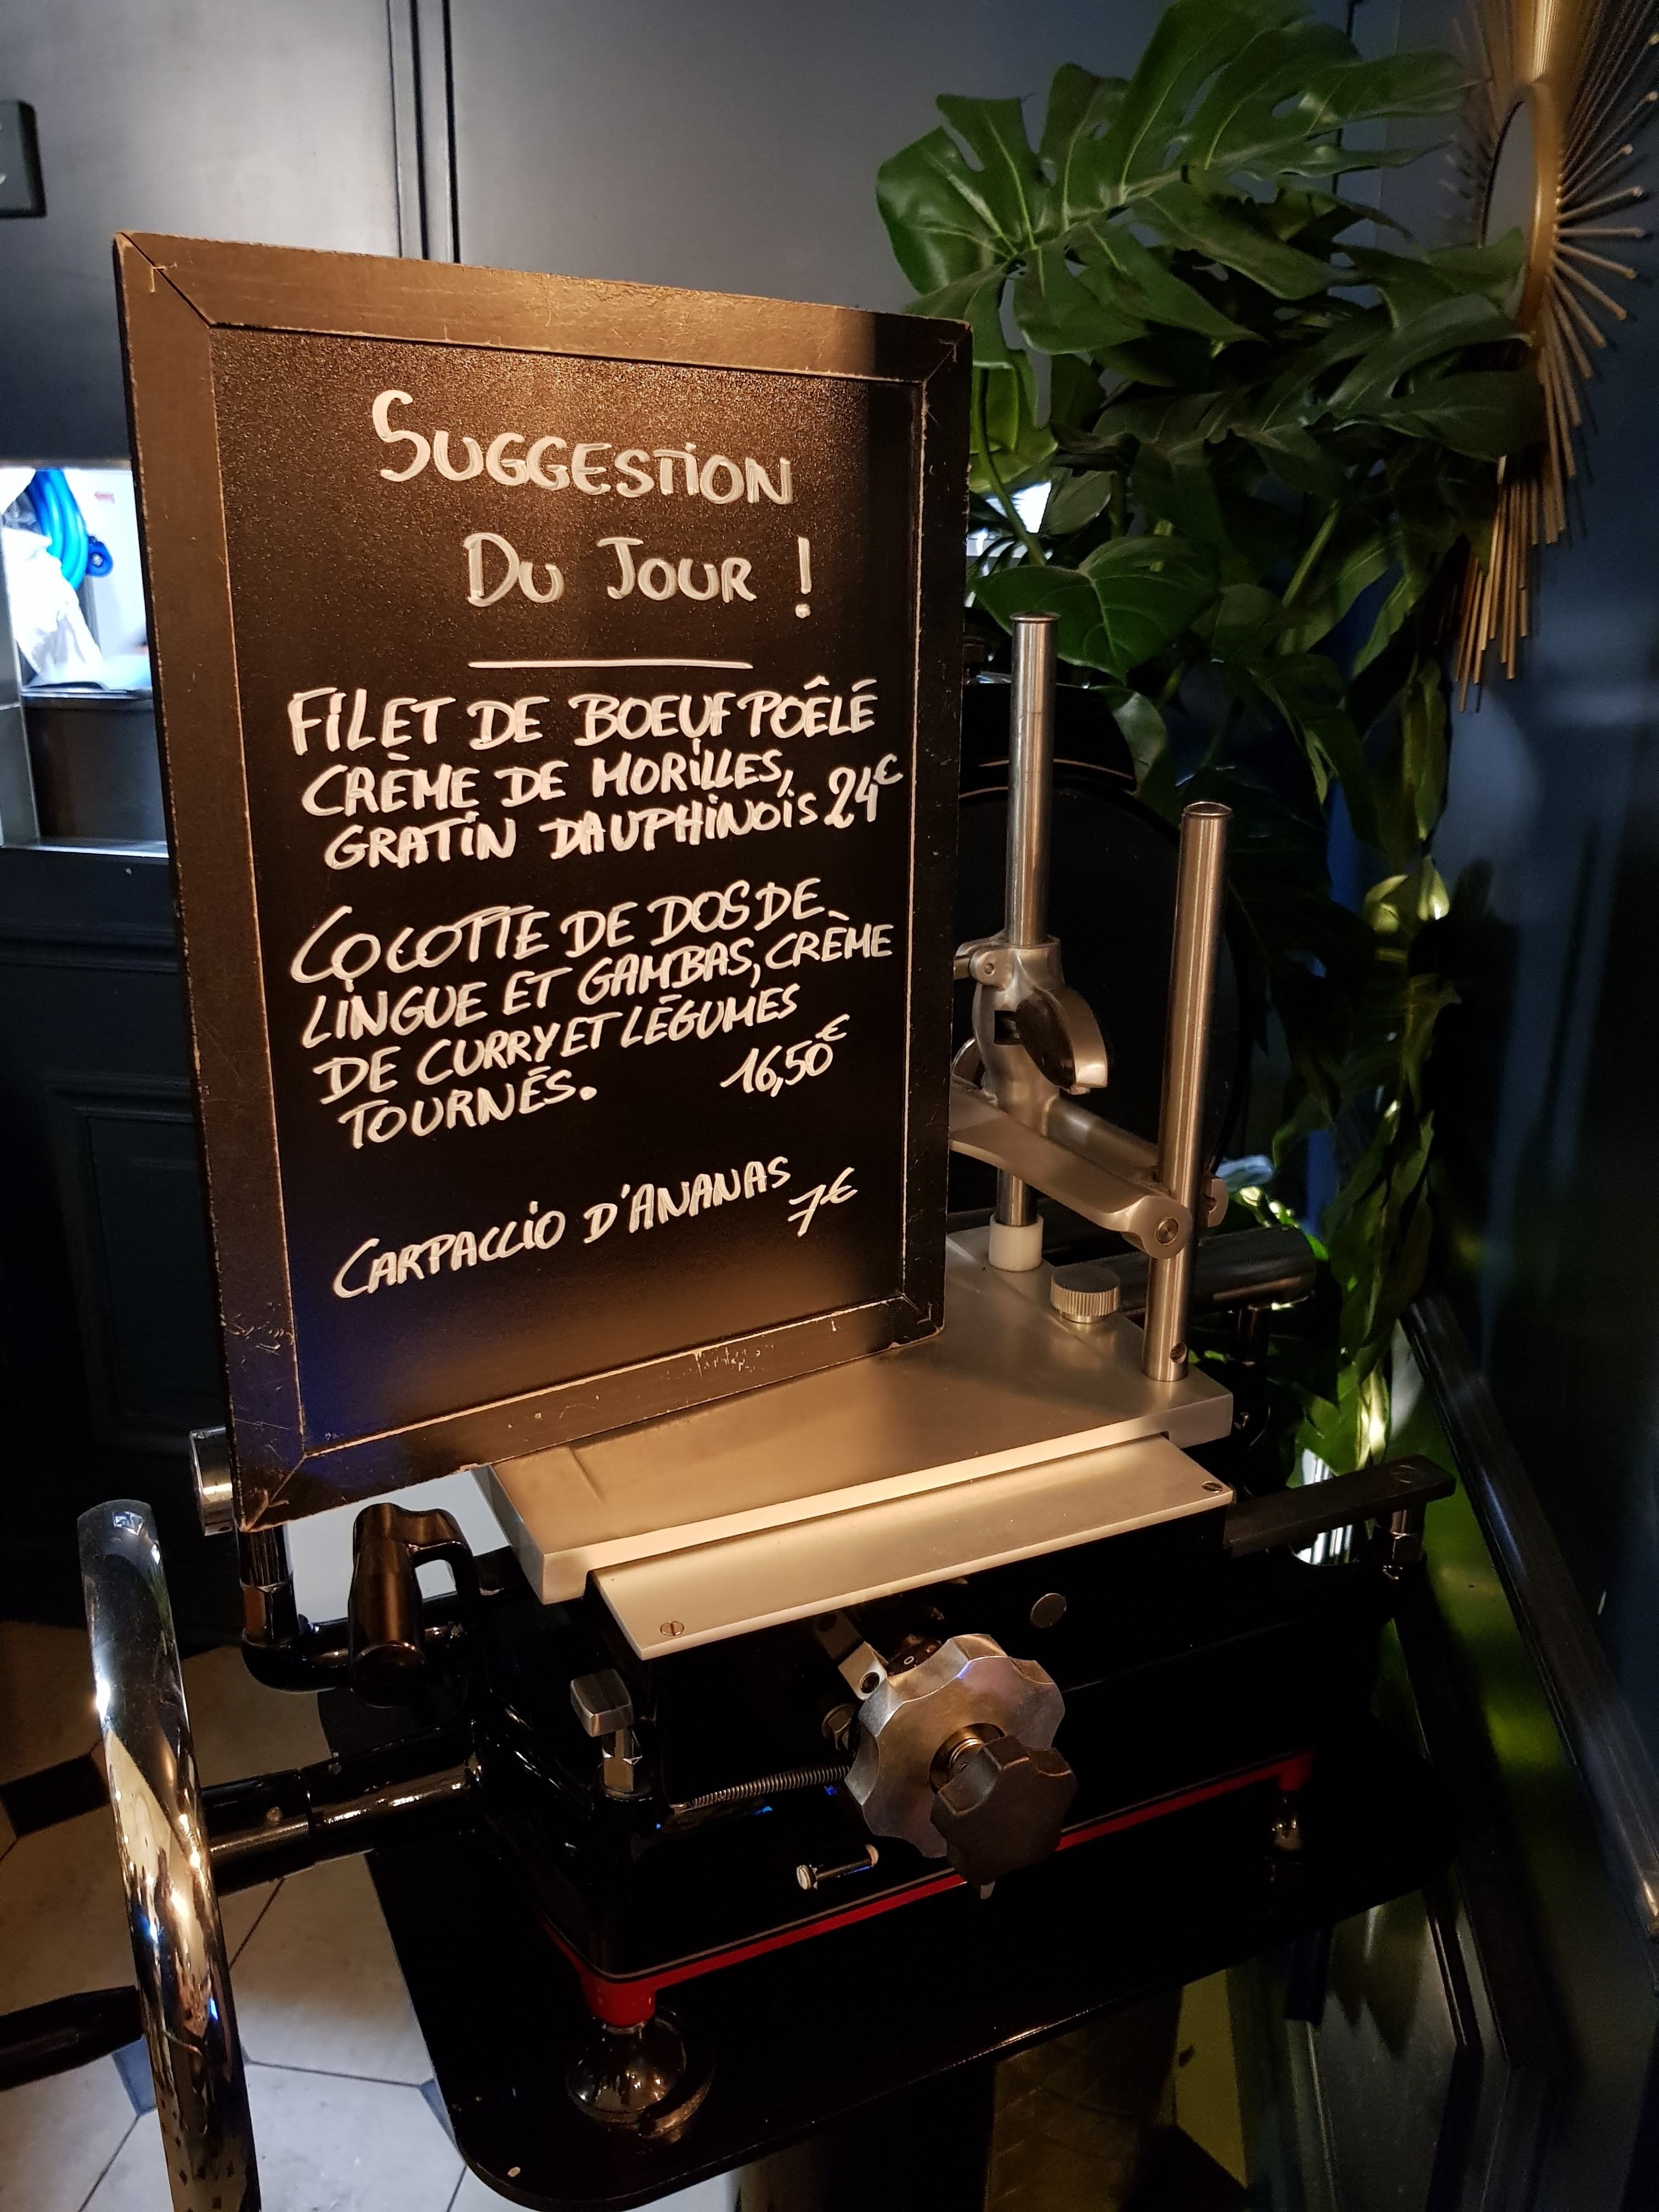 SUGGESTION
DU JOUR !
FILET DE BOEUF POÊLÉ
CRÈME DE MORILLES,
GRATIN DAUPHINOIS 24€
COCOTTE DE DOS DE
LINGUE ET GAMBAS, CRÈME
DE CURRY ET LÉGUMES
TOURNÉS. 16,50€
CARPACCIO D'ANANAS
7€